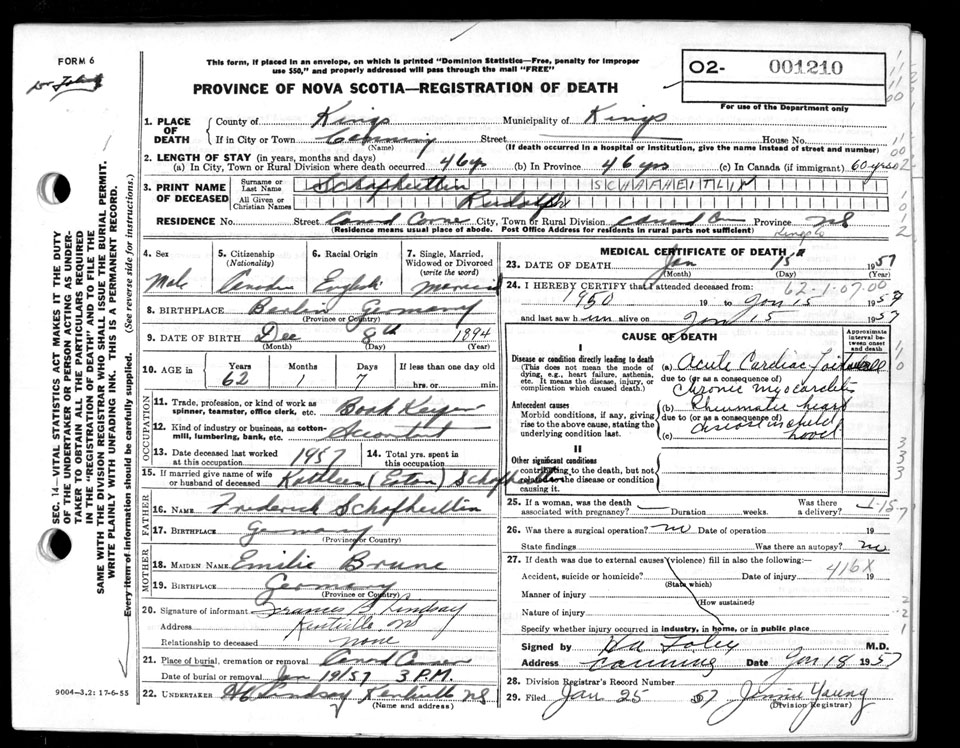 FORM 6
Dr Foley
This form, if placed in an envelope, on which is printed "Dominion Statistics—Free, penalty for improper
use $50," and properly addressed will pass through the mail "FREE"
PROVINCE OF NOVA SCOTIA—REGISTRATION OF DEATH
O2- 001210
For use of the Department only
1. PLACE OF DEATH
County of Kings Municipality of Kings
If in City or Town Canning Street House No.
(Name) (If death occurred in a hospital or institution, give the name instead of street and number)
2. LENGTH OF STAY (in years, months and days)
(a) In City, Town or Rural Division where death occurred 46 yrs (b) In Province 46 yrs (c) In Canada (if immigrant) 60 yrs
3. PRINT NAME OF DECEASED
Surname or Last Name Schafheitlin SCHAFHEITLIN
All Given or Christian Names Rudolph
RESIDENCE No. Street Canard Corner City, Town or Rural Division Canard Province NS
(Residence means usual place of abode. Post Office Address for residents in rural parts not sufficient) Kings Co
4. Sex
Male
5. Citizenship
(Nationality)
6. Racial Origin
English
7. Single, Married, Widowed or Divorced
(write the word)
Married
8. BIRTHPLACE Berlin Germany
(Province or Country)
9. DATE OF BIRTH Dec 8th 1894
(Month) (Day) (Year)
10. AGE in Years Months Days If less than one day
62 1 7 hrs. or min.
OCCUPATION
11. Trade, profession, or kind of work as
spinner, teamster, office clerk, etc. Book Keeper
12. Kind of industry or business, as cotton-
mill, lumbering, bank, etc. Accountent
13. Date deceased last worked
at this occupation 1957
14. Total yrs. spent in
this occupation
15. If married give name of wife
or husband of deceased Kathleen (Eaton) Schafheitlin
FATHER
16. NAME Frederick Schafheitlin
17. BIRTHPLACE Germany
(Province or Country)
MOTHER
18. MAIDEN NAME Emilie Brune
19. BIRTHPLACE Germany
(Province or Country)
20. Signature of informant Francis B. Lindsay
Address Kentville NS
Relationship to deceased none
21. Place of burial, cremation or removal Canard
Date of burial or removal Jan 19/57 3 P.M.
22. UNDERTAKER Lindsay Kentville NS
(Name and address)
MEDICAL CERTIFICATE OF DEATH
23. DATE OF DEATH Jan 15 1957
(Month) (Day) (Year)
24. I HEREBY CERTIFY that I attended deceased from: 62-1-07.00
1950 19 to Jan 15 1957
and last saw him alive on Jan 15 1957
CAUSE OF DEATH
Approximate interval between onset and death
I
Disease or condition directly leading to death
(This does not mean the mode of dying, e.g., heart failure, asthenia, etc. It means the disease, injury, or complication which caused death.)
(a) Acute Cardiac
due to (or as a consequence of)
Chronic myocarditis
Antecedent causes
Morbid conditions, if any, giving rise to the above cause, stating the underlying condition last.
(b) Rheumatic heart
due to (or as a consequence of)
disease in child
(c) hood
II
Other significant conditions
contributing to the death, but not related to the disease or condition causing it.
25. If a woman, was the death
associated with pregnancy? — Duration weeks. Was there a delivery?
1-15-7
26. Was there a surgical operation? no Date of operation 19
State findings Was there an autopsy? no
27. If death was due to external causes (violence) fill in also the following:—
416X
Accident, suicide or homicide? Date of injury 19
(State which)
Manner of injury
(How sustained)
Nature of injury
Specify whether injury occurred in industry, in home, or in public place
Signed by Foley M.D.
Address Canning Date Jan 18 1957
28. Division Registrar's Record Number
29. Filed Jan 25 57 Jennie Young
(Division Registrar)
SEC. 14—VITAL STATISTICS ACT MAKES IT THE DUTY
OF THE UNDERTAKER OR PERSON ACTING AS UNDER-
TAKER TO OBTAIN ALL THE PARTICULARS REQUIRED
IN THE "REGISTRATION OF DEATH" AND TO FILE THE
SAME WITH THE DIVISION REGISTRAR WHO SHALL ISSUE THE BURIAL PERMIT.
WRITE PLAINLY WITH UNFADING INK. THIS IS A PERMANENT RECORD.
Every item of information should be carefully supplied. (See reverse side for instructions.)
9004—3.2: 17-6-55